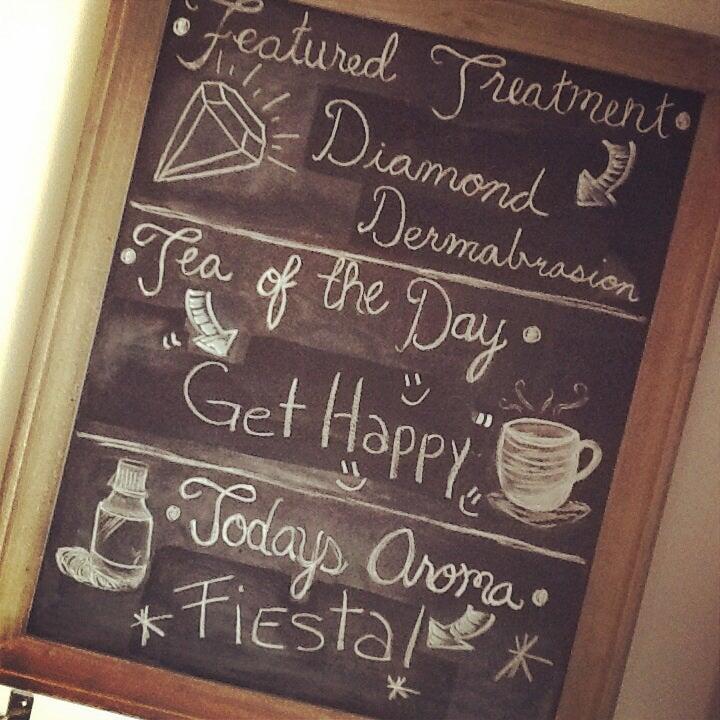 Featured Treatment
Diamond
Dermabrasion
Tea of the Day
"Get Happy"
Todays Aroma
Fiesta!